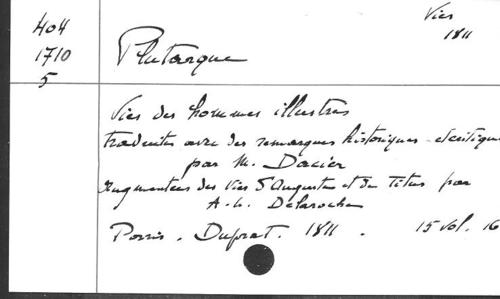 404
1710
5
Vies
1811
Plutarque
Vies des hommes illustres
traduites avec des remarques historiques et critiques
par M. Dacier
Augmentées des Vies d'Auguste et de Titus par
A.L. Delaroche
Paris. Duprat. 1811. 15 vol. 16